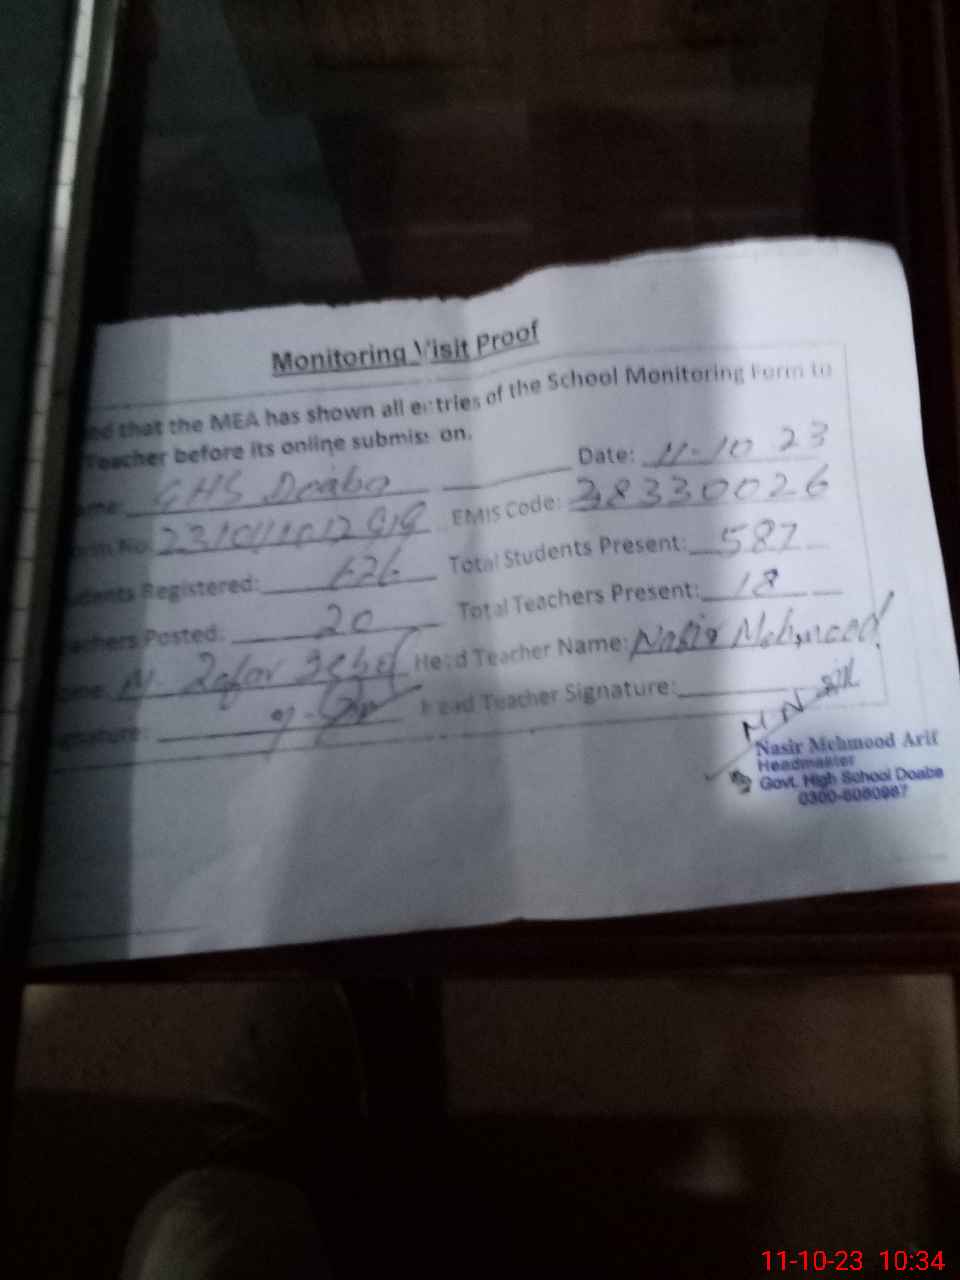 Monitoring Visit Proof
that the MEA has shown all entries of the School Monitoring Form to
Teacher before its online submission.
GHS Doaba Date: 11-10 23
EMIS Code: 38330026
Students Registered: 626 Total Students Present: 587
Teachers Posted: 20 Total Teachers Present: 18
M. Zafar Head Teacher Name: Nasir Mehmood
Signature: Head Teacher Signature:
Nasir Mehmood Arif
Headmaster
Govt. High School Doaba
11-10-23 10:34